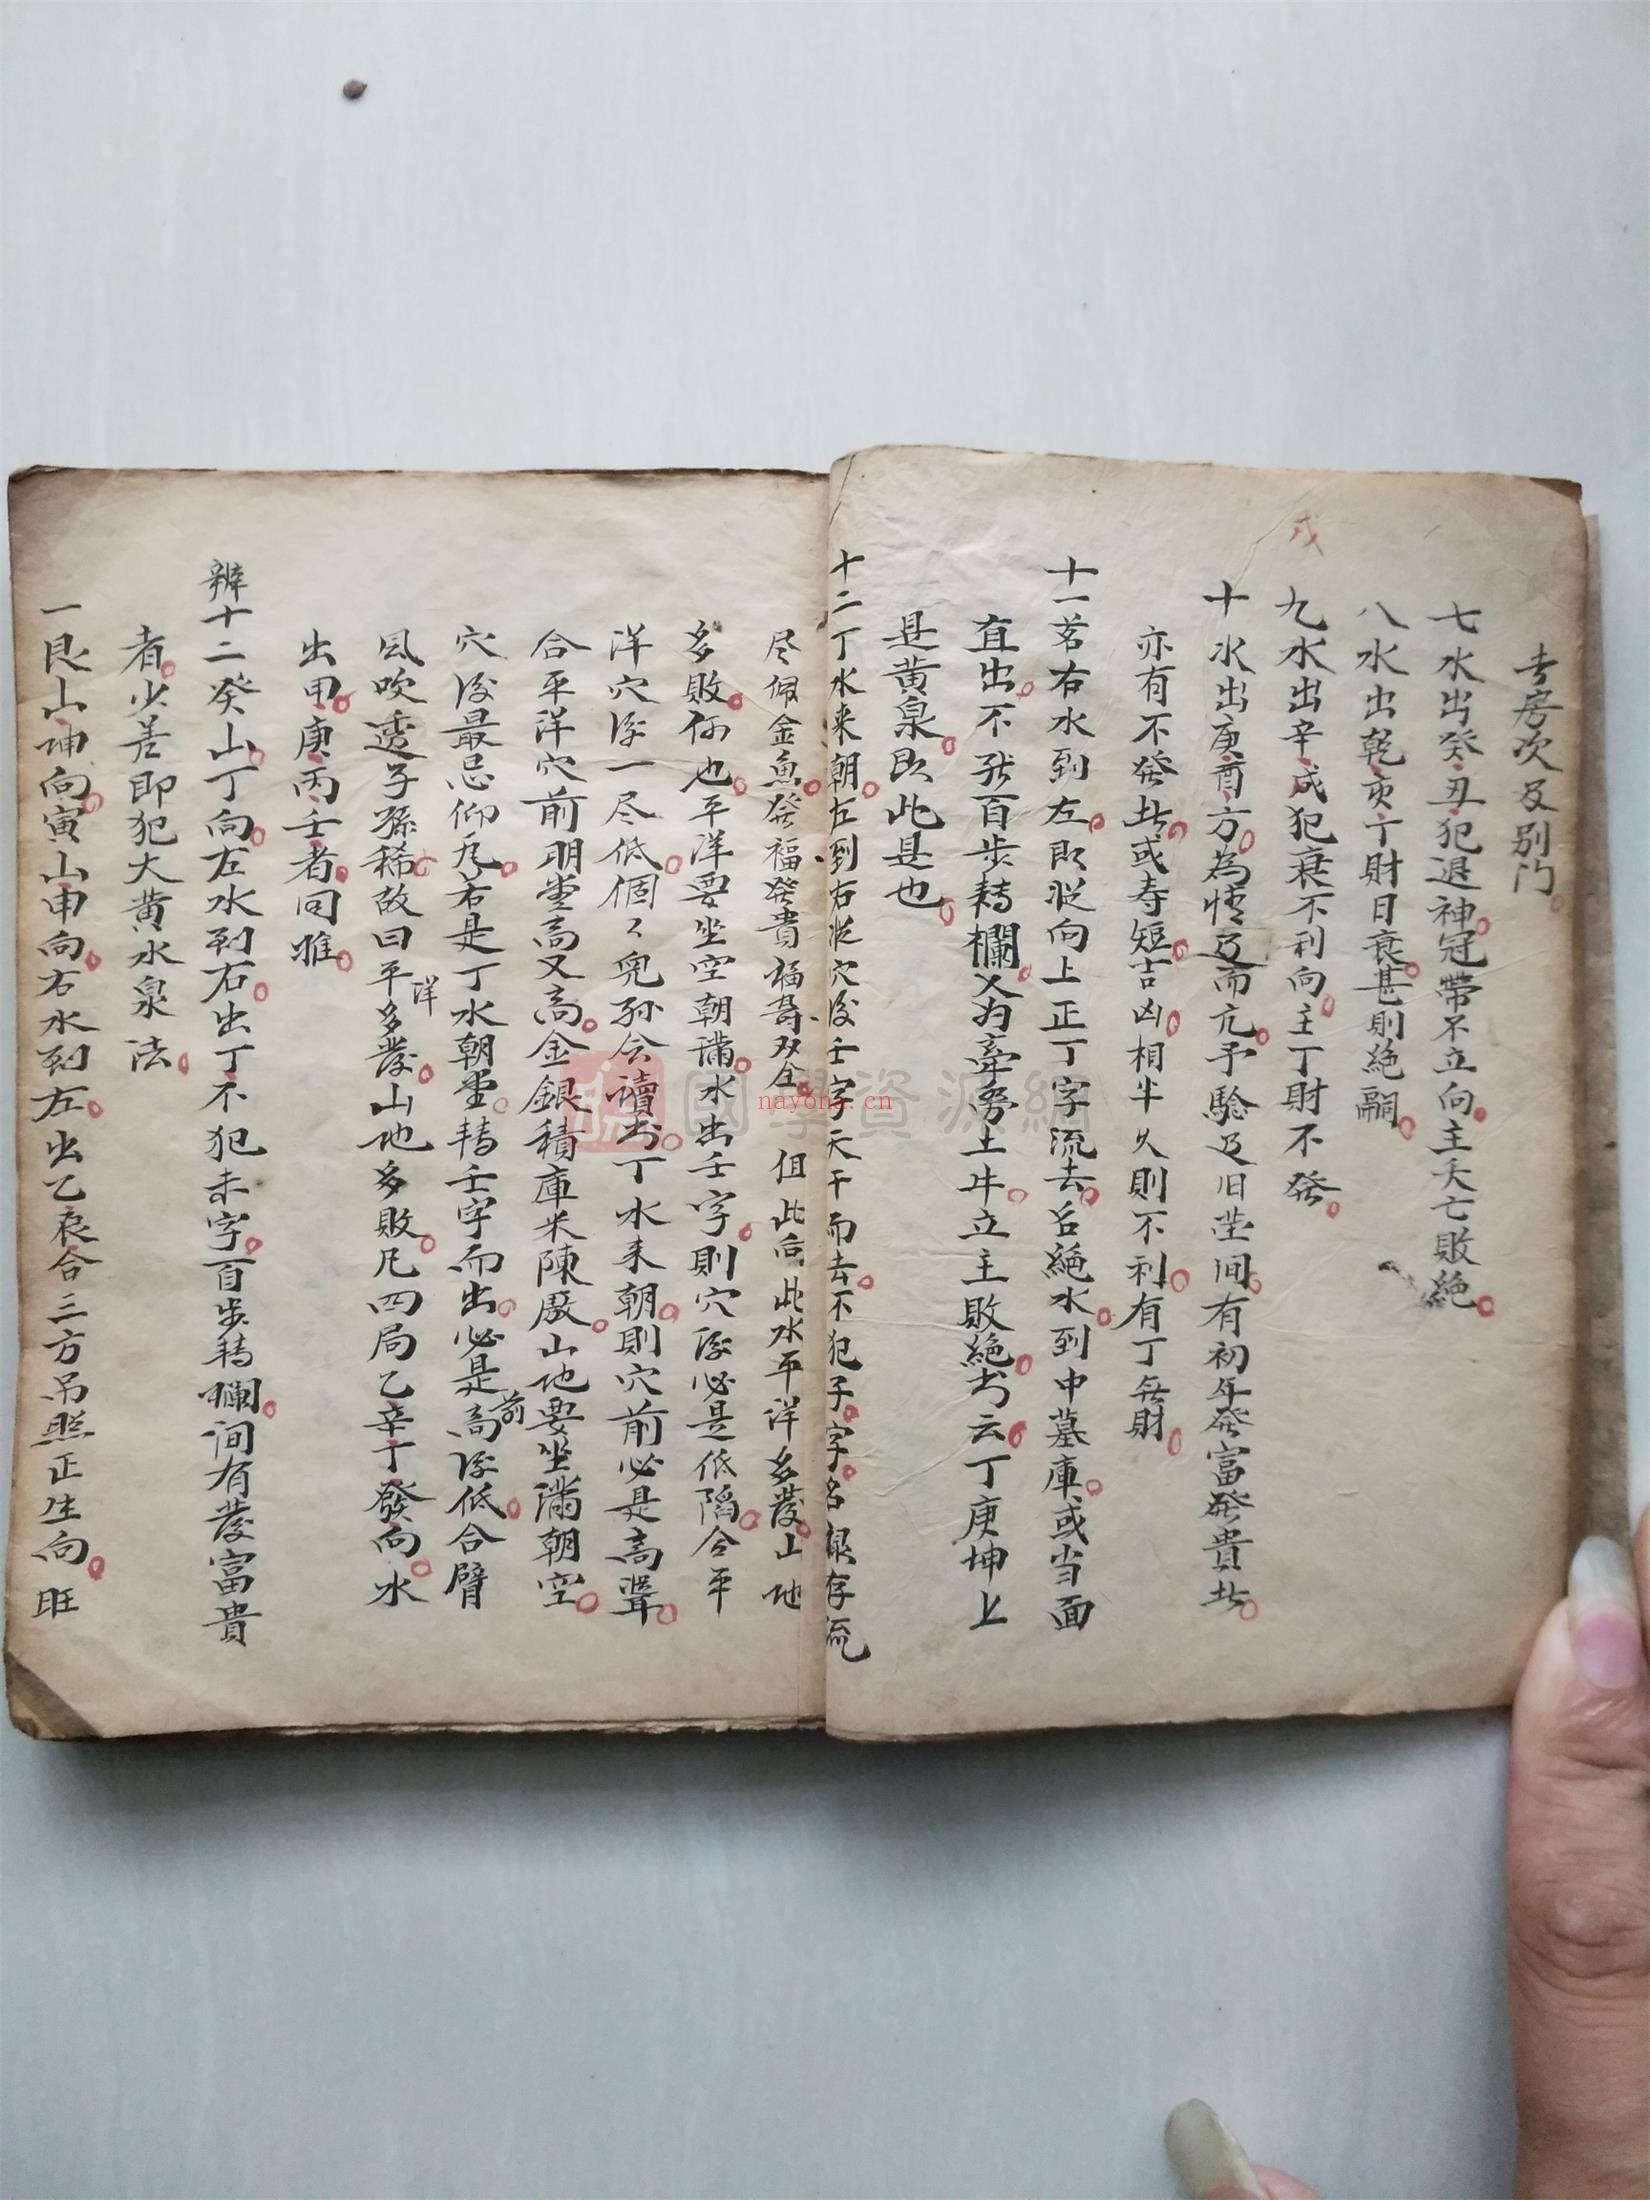 長房次及别门
七水出癸丑犯退神冠帶不立向主夭亡敗絶
八水出乾亥丁財日衰甚則絶嗣
戌
九水出辛戌犯衰不利向主丁財不發
十水出庚酉方為情过而亢予驗过旧塋间有初年發富發貴
亦有不發或寿短吉凶相半久則不利有丁無財
十一若右水到左即從向上正丁字流去名絶水到中墓庫或当面
直出不張百步轉欄又為牽旁土牛立主敗絶书云丁庚坤上
是黄泉即此是也
十二丁水来朝左到右從穴後壬字天干而去不犯子字名祿存流
尽佩金魚發福發貴福寿双全但此向此水平洋多發山地
多敗何也平洋要坐空朝满水出壬字則穴後必是低陷合平
洋穴後一尽低個々兒孙会讀书丁水来朝則穴前必是高聳
合平洋穴前明堂高又高金銀積庫米陳廒山地要坐满朝空
穴後最忌仰瓦若是丁水朝堂轉壬字而出必是前高後低合臂
风吹透子孫稀故曰平洋多發山地多敗凡四局乙辛丁癸向水
出甲庚丙壬者同唯
辨十二癸山丁向左水到右出丁不犯未字百步轉欄间有發富貴
者少差即犯大黄水泉法
一艮山坤向寅山申向右水到左出乙辰合三方吊照正生向旺
國學資源網
nayona.cn